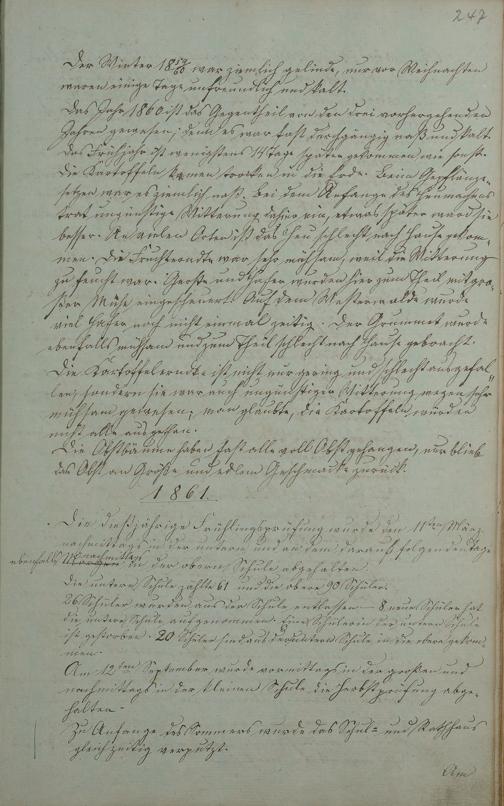 247
Der Winter 18 59/60 war ziemlich gelinde, nur vor Weihnachten
waren einige Tage unfreundlich und kalt.
Das Jahr 1860 ist das Gegentheil von den drei vorhergehenden
Jahren gewesen; denn es war fast durchgängig naß und kalt.
Das Frühjahr ist wenigstens 14 Tage später gekommen wie sonst.
Die Kartoffeln kamen trocken in die Erde. Beim Gepflänze-
setzen war es ziemlich naß. Bei dem Anfange des Heumachens
trat ungünstige Witterung ein, etwas später ward sie
besser. An vielen Orten ist das Heu schlecht nach Hause gekom-
men. Die Fruchterndte war sehr mühsam, weil die Witterung
zu feucht war. Gerste und Hafer wurden hier zum Theil mit gro-
ßer Mühe eingescheuert. Auf dem Westerwalde wurde
viel Hafer noch nicht einmal zeitig. Der Grummet wurde
ebenfalls mühsam und zum Theil schlecht nach Hause gebracht.
Die Kartoffelerndte ist nicht nur gering und schlecht ausgefal-
len, sondern sie war auch ungünstiger Witterung wegen sehr
mühsam gewesen; man glaubte, die Kartoffeln würden
nicht alle
Die Obstbäume haben fast alle voll Obst gehangen, nur blieb
das Obst an Größe und edlem Geschmacke zurück.
1861
Die dießjährige Frühlingsprüfung wurde den 11ten März
nachmittags in der untern und an dem darauf folgenden Tage
ebenfalls nachmittags in der obern Schule abgehalten.
Die untere Schule zählte 61 und die obere 90 Schüler.
26 Schüler wurden aus der Schule entlassen – 8 neue Schüler hat
die untere Schule aufgenommen. Eine Schülerin der untern Schule
ist gestorben. 20 Schüler sind aus der untern Schule in die obere gekom-
men.
Am 12ten September wurde vormittags in der großen und
nachmittags in der kleinen Schule die Herbstprüfung abge-
halten.
Zu Anfange des Sommers wurde das Schul- und Rathhaus
gleichzeitig verputzt.
Am